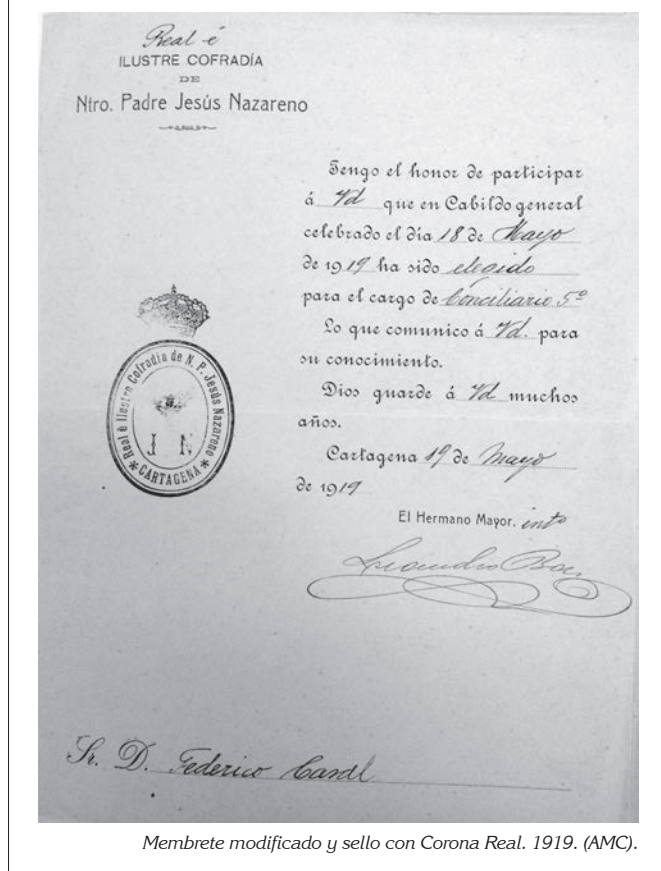 Real é
ILUSTRE COFRADÍA
DE
Ntro. Padre Jesús Nazareno
Tengo el honor de participar
á Vd que en Cabildo general
celebrado el día 18 de Mayo
de 1919 ha sido elegido
para el cargo de Conciliario 5º
Lo que comunico á Vd. para
su conocimiento.
Dios guarde á Vd muchos
años.
Cartagena 19 de Mayo
de 1919
El Hermano Mayor. intº
Real é Ilustre Cofradia de N. P. Jesús Nazareno
J N
* CARTAGENA *
Sr. D. Federico Casal
Membrete modificado y sello con Corona Real. 1919. (AMC).